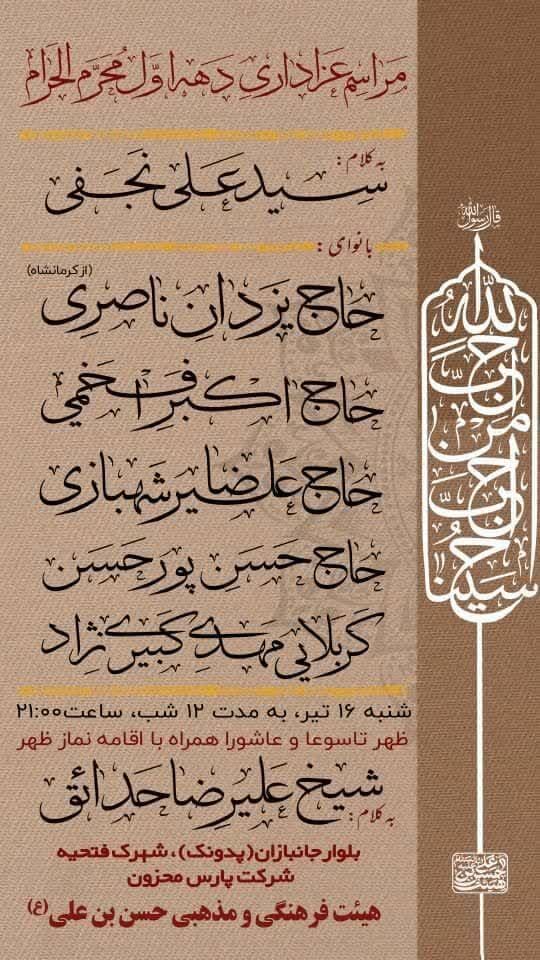 مراسم عزاداری دهه اول محرم الحرام
به کلام:
سید علی نجفی
بانوای:
(از کرمانشاه)
حاج یزدان ناصری
حاج اکبر افخمی
حاج علیرضا شهبازی
حاج حسن پورحسن
کربلایی مهدی کبیری نژاد
شنبه ۱۶ تیر، به مدت ۱۲ شب، ساعت ۲۱:۰۰
ظهر تاسوعا و عاشورا همراه با اقامه نماز ظهر
به کلام:
شیخ علیرضا حدائق
بلوار جانبازان (پدونک)، شهرک فتحیه
شرکت پارس محزون
هیئت فرهنگی و مذهبی حسن بن علی (ع)
قال رسول الله
احب الله من احب حسینا